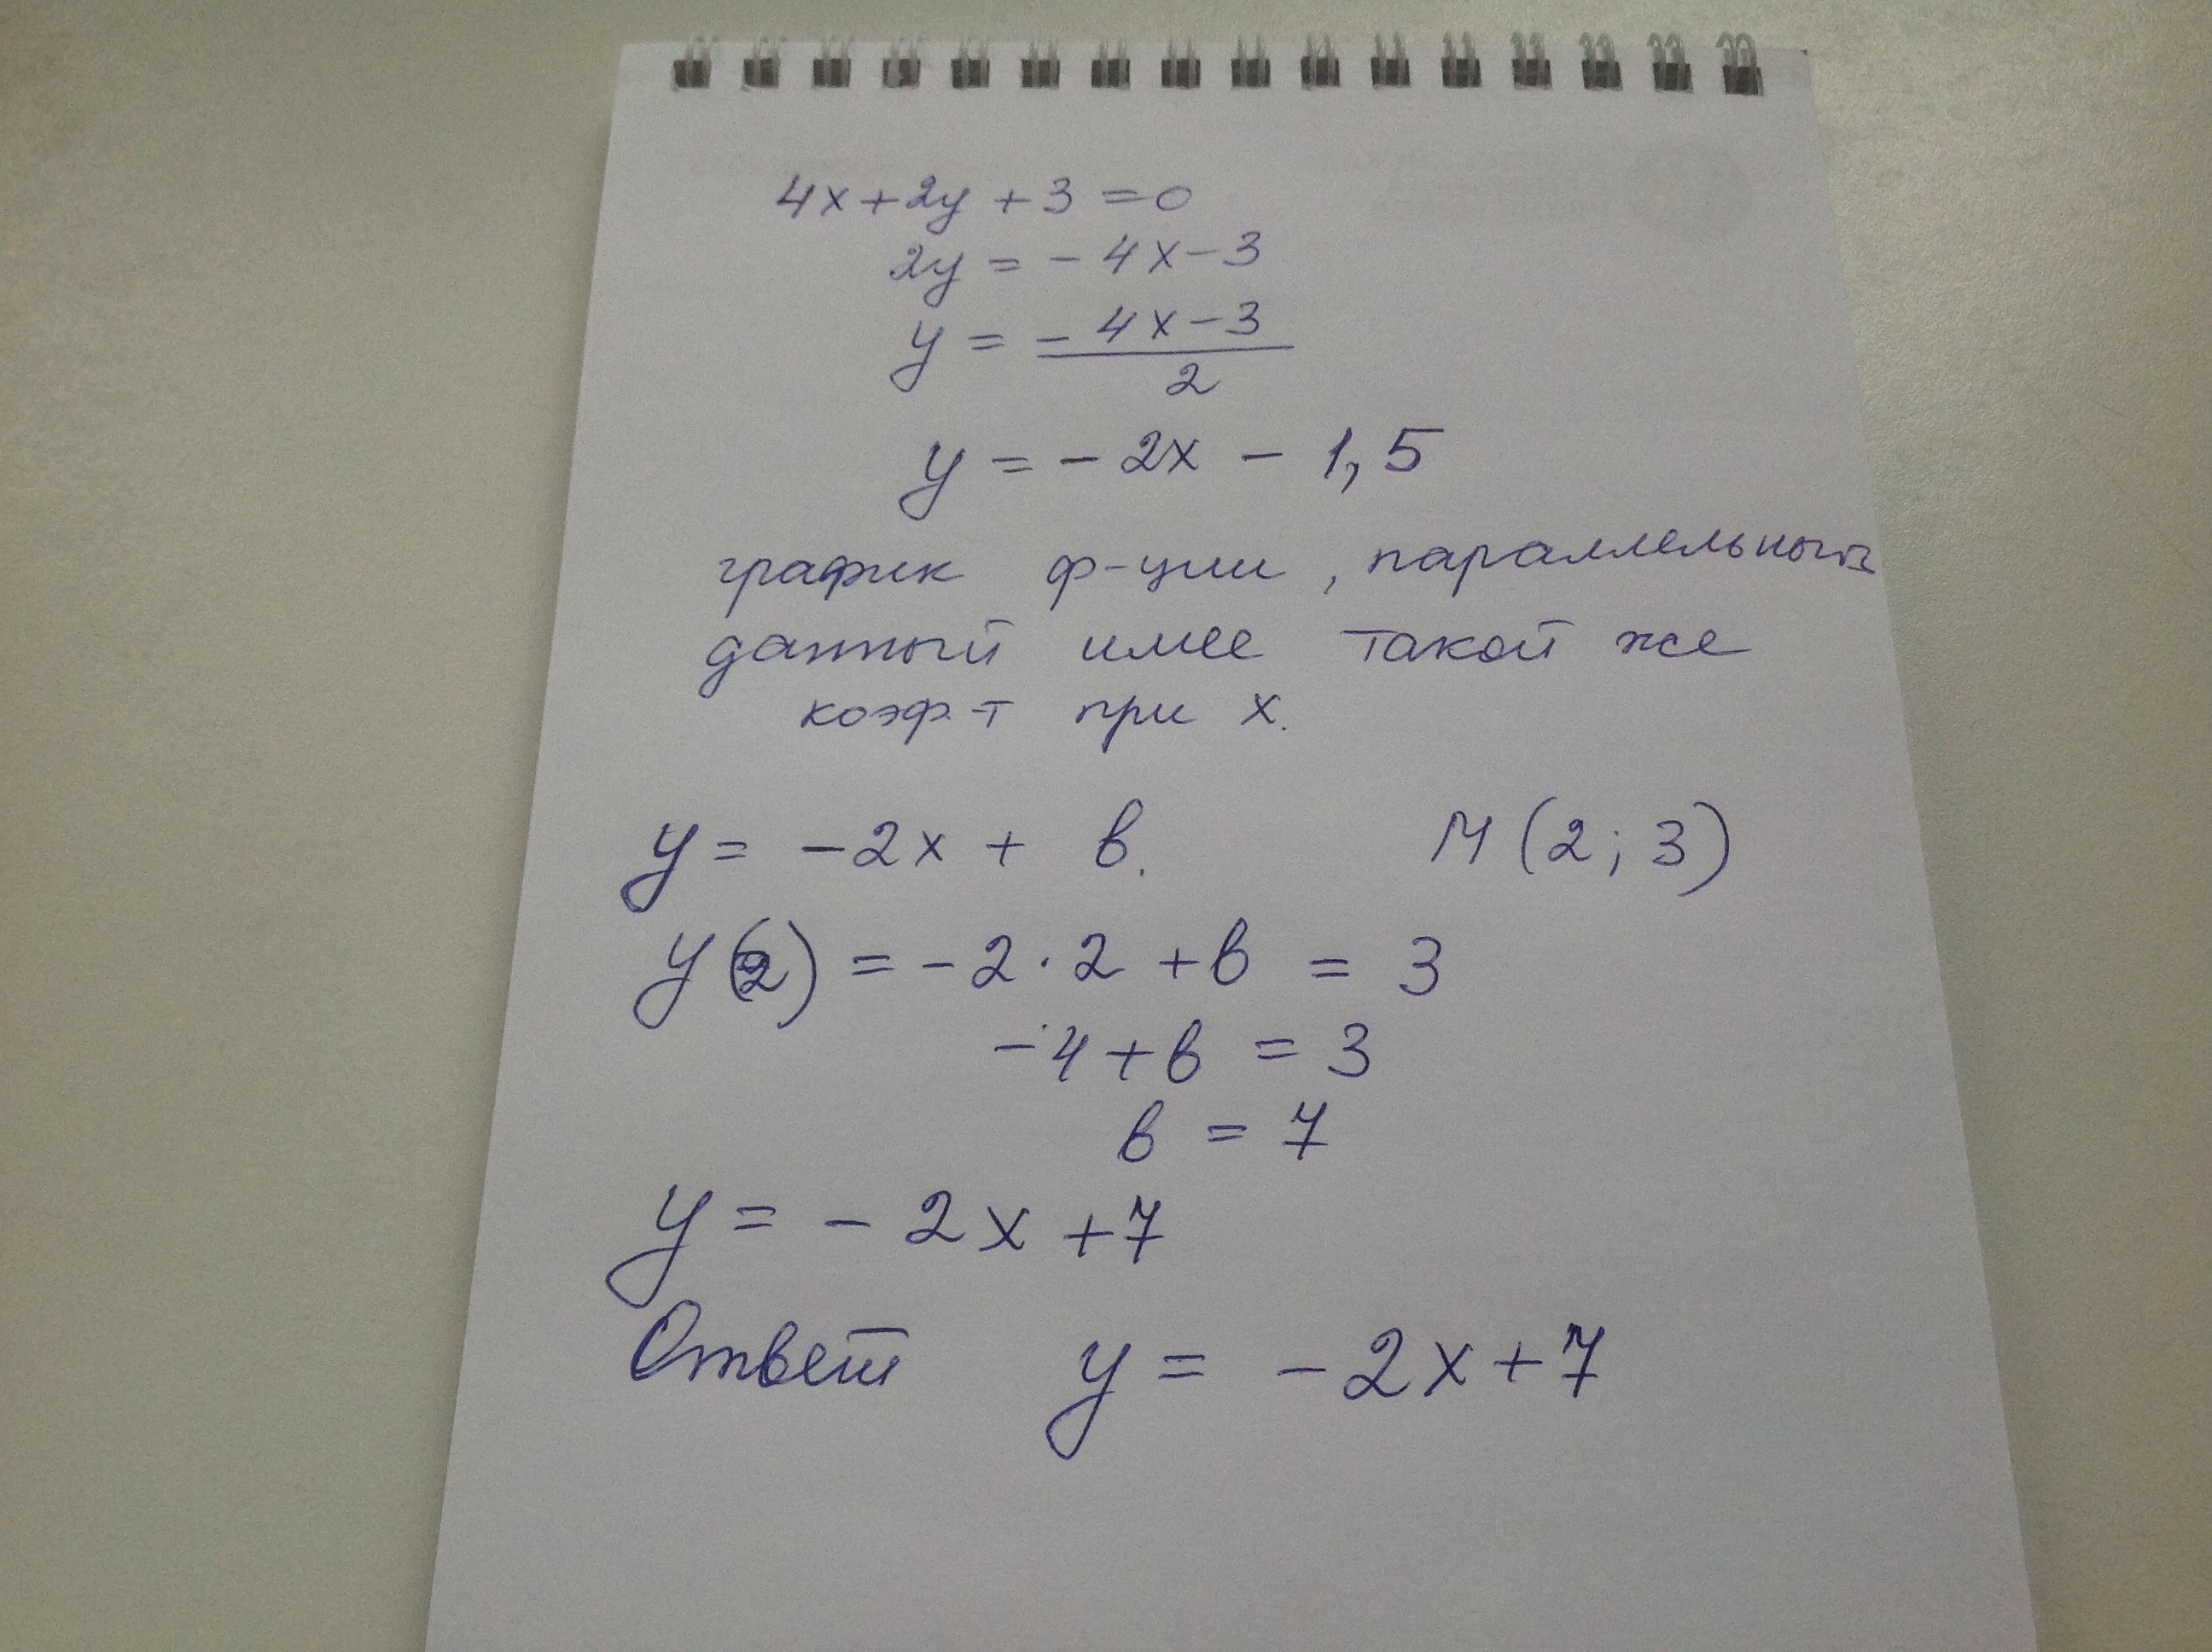 4x+2y+3=0
2y=-4x-3
y=\frac{-4x-3}{2}
y=-2x-1,5
график ф-ции, параллельный
данный имее такой же
коэф-т при x.
y=-2x+в. М(2;3)
y(2)=-2·2+в=3
-4+в=3
в=7
y=-2x+7
Ответ y=-2x+7